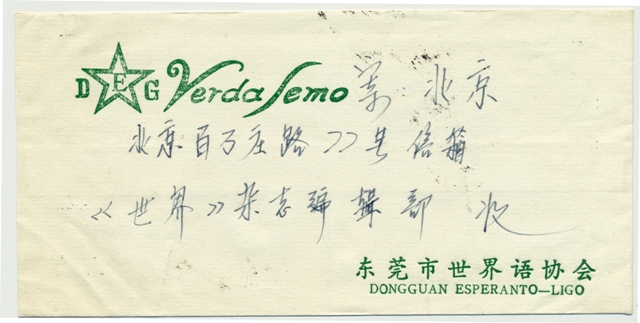 DEG Verda Semo 寄 北京
北京百万庄路77号信箱
《世界》杂志编辑部 收
东莞市世界语协会
DONGGUAN ESPERANTO—LIGO